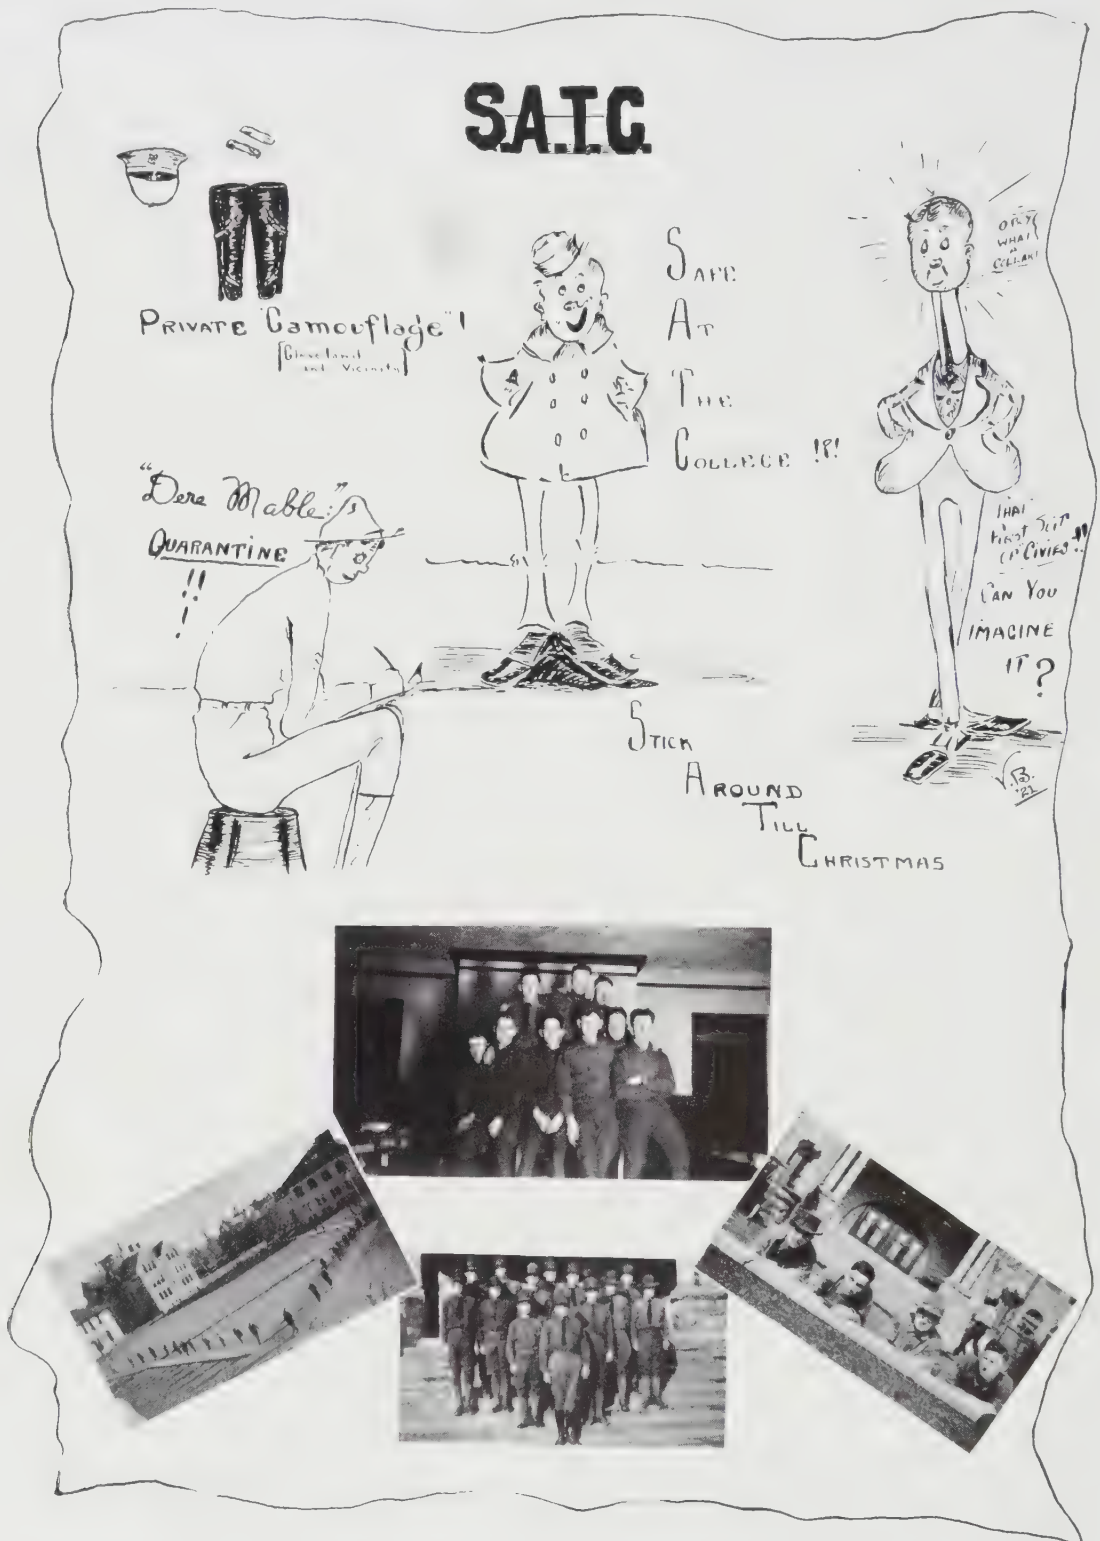 S.A.T.C.
PRIVATE "Camouflage"!
[Cleveland
and Vicinity]
SAFE
AT
THE
COLLEGE !?!
WHAT A
COLLAR!
"Dere Mable:"
QUARANTINE
!!!
THAT
FIRST SUIT
OF CIVIES!!
CAN YOU
IMAGINE
IT?
STICK
AROUND
TILL
CHRISTMAS
V.B.
'22